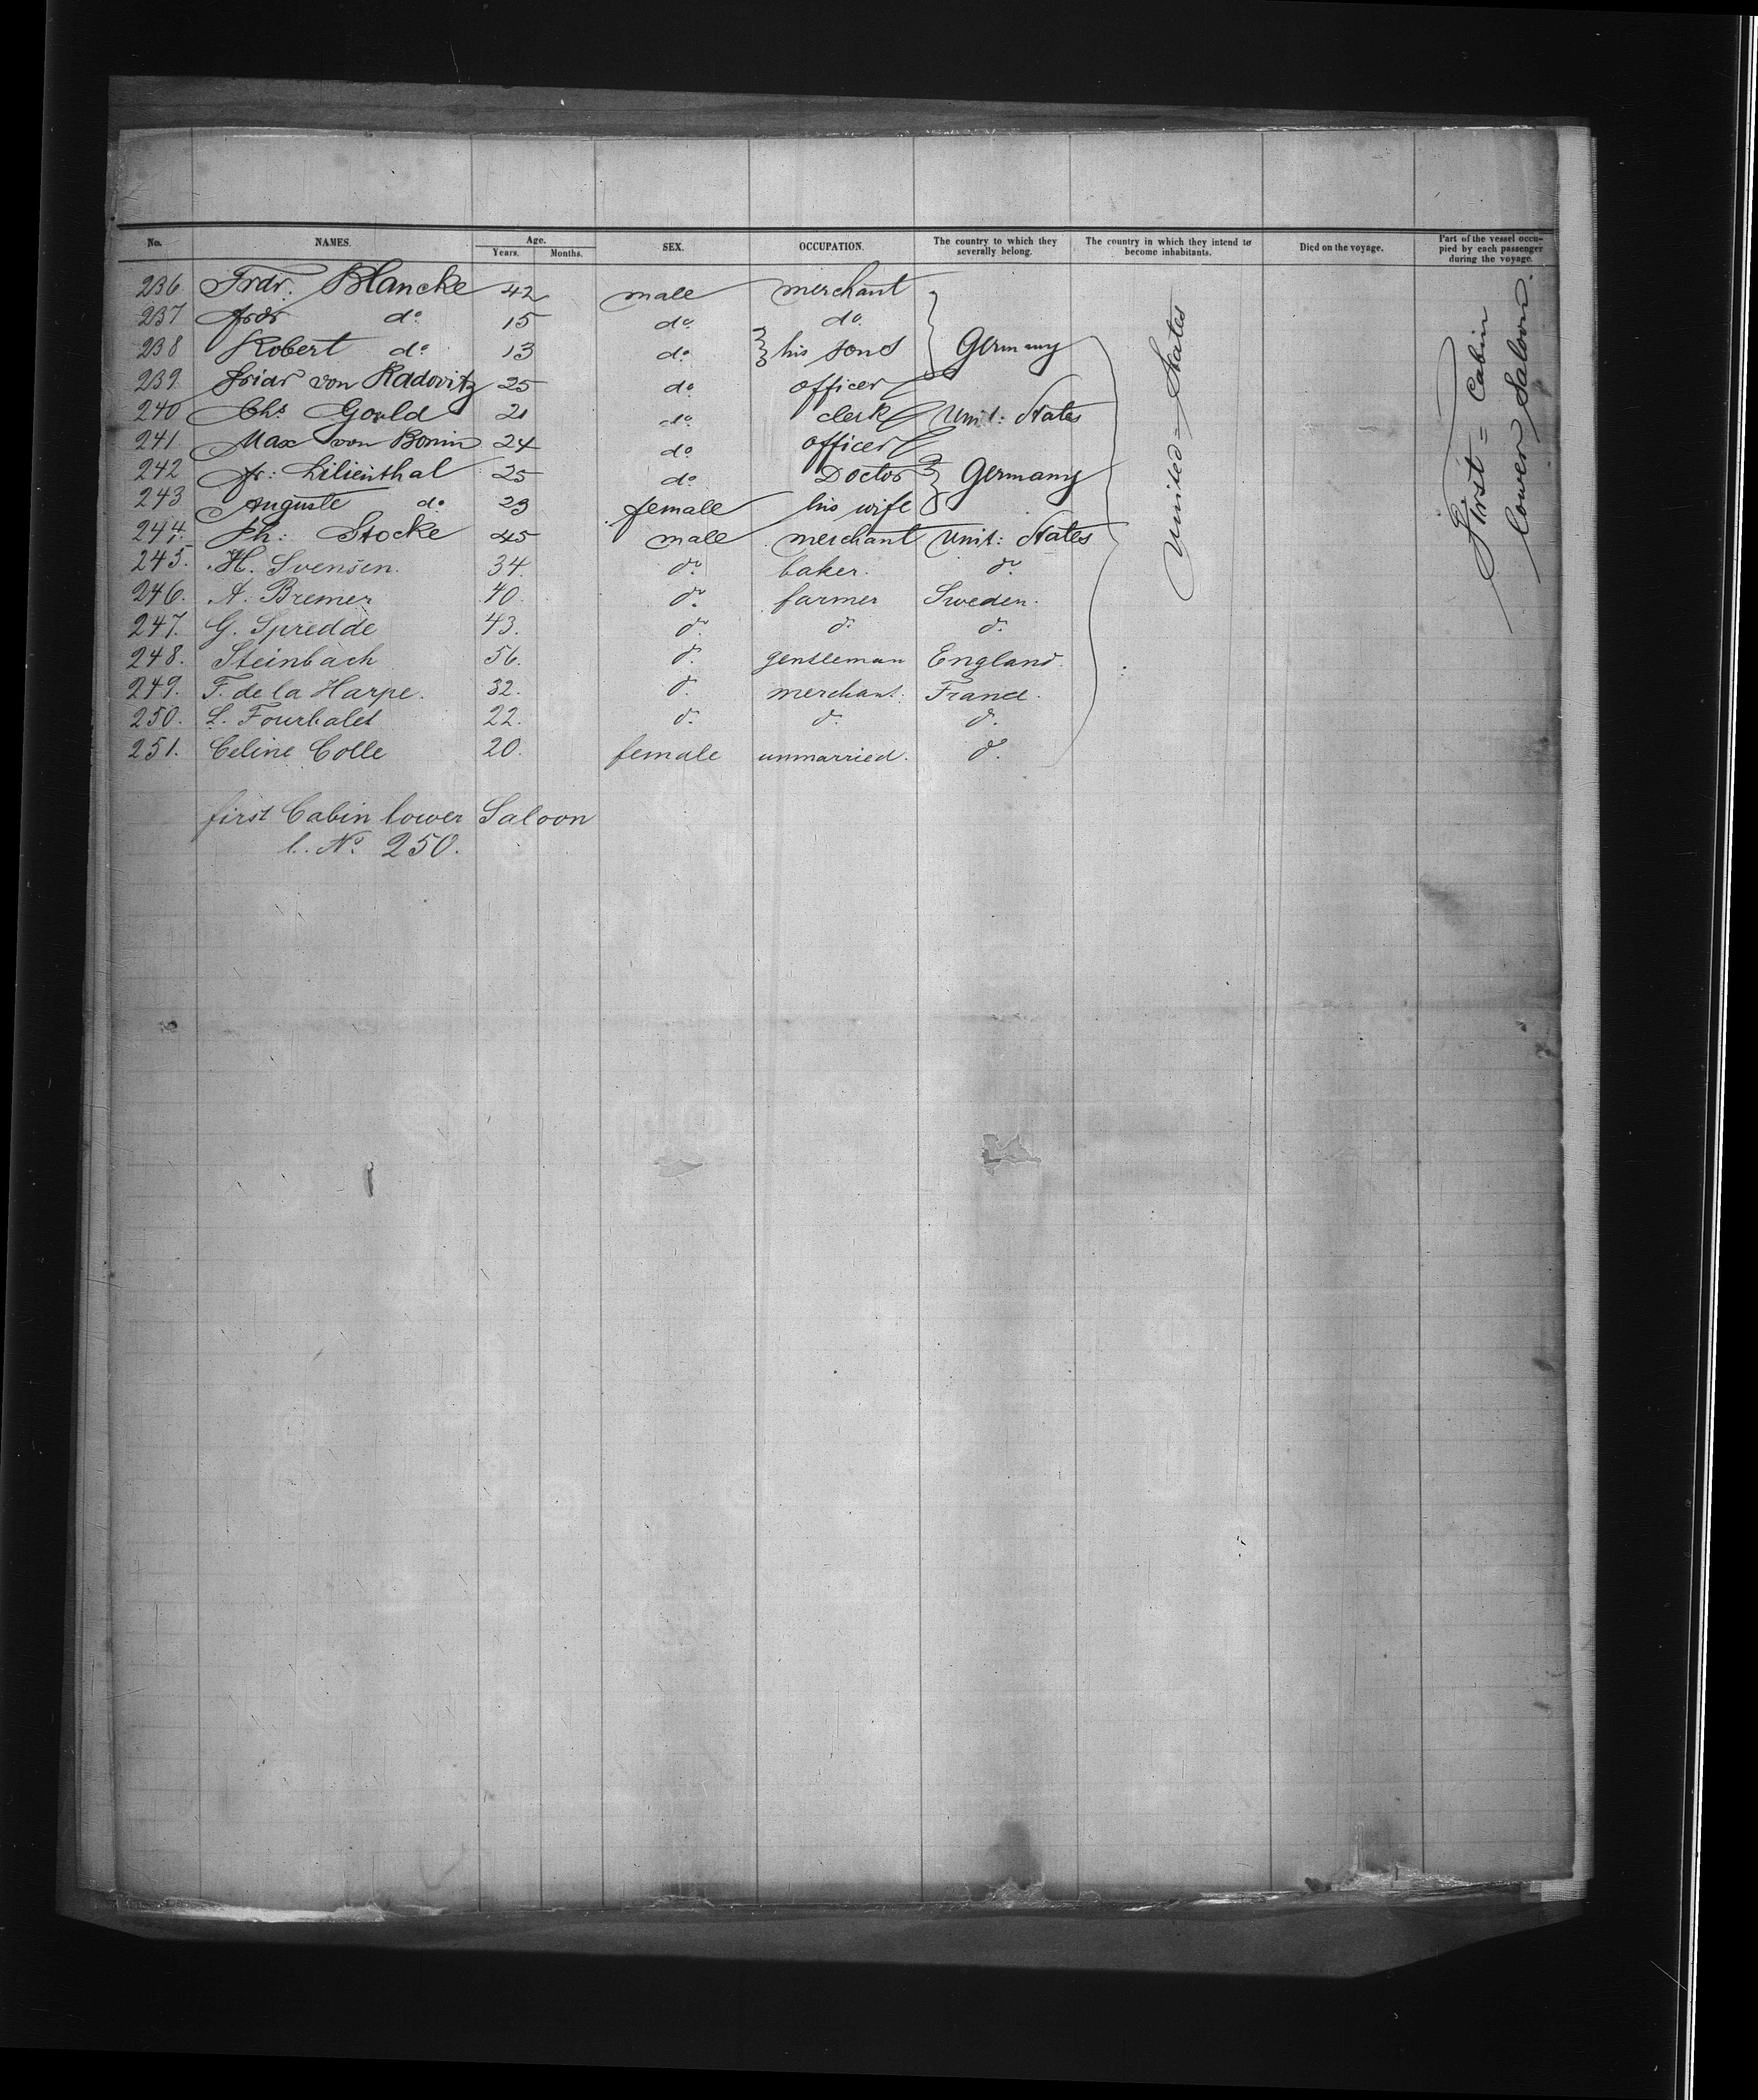 No. NAMES. Age. Years. Months. SEX. OCCUPATION. The country to which they severally belong. The country in which they intend to become inhabitants. Died on the voyage. Part of the vessel occupied by each passenger during the voyage.
236. Frdr. Blancke 42 male merchant
237 Frdr do 15 do. do.
238 Robert do. 13 do. his sons Germany
239. von Radovitz 25 do. officer
240 Chs. Gould 21 do. clerk Unit: States
241. Max von Bonin 24 do. officer
242 Fr: Lilienthal 25 do. Doctor Germany
243 Auguste do. 23 female his wife
244. Ph: Stocke 45 male merchant Unit: States
245. H. Svensen. 34. do. baker. do.
246. A. Bremer 40. do. farmer Sweden.
247. G. Spredde 43. do. do. do.
248. Steinbach 56. do. gentleman England.
249. F. de la Harpe. 32. do. merchant. France.
250. L. Fourbalet 22. do. do. do.
251. Celine Colle 20. female unmarried. do.
United = States
First = Cabin
lower Saloon.
first Cabin lower Saloon
l. No. 250.